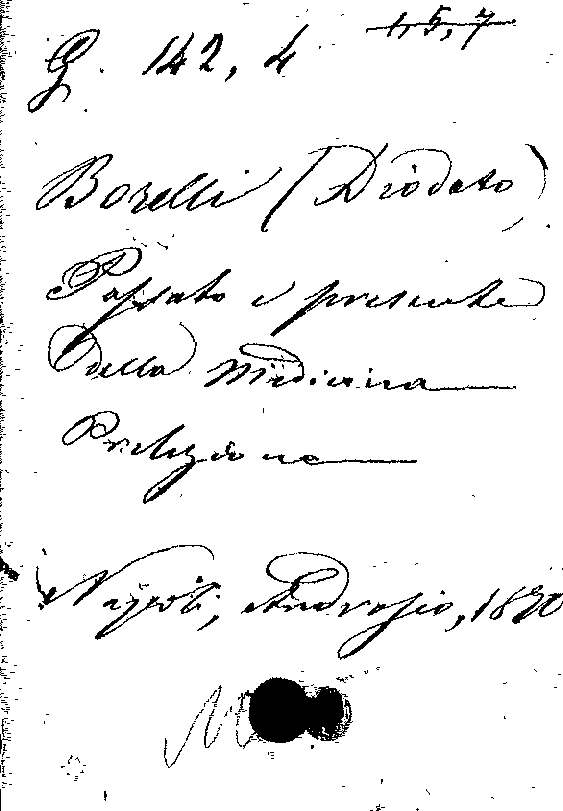 G. 142, 4 1, 5, 7
Borelli (Diodato)
Passato e presente
della Medicina
Prelezione
Napoli, Androsio, 1870
M